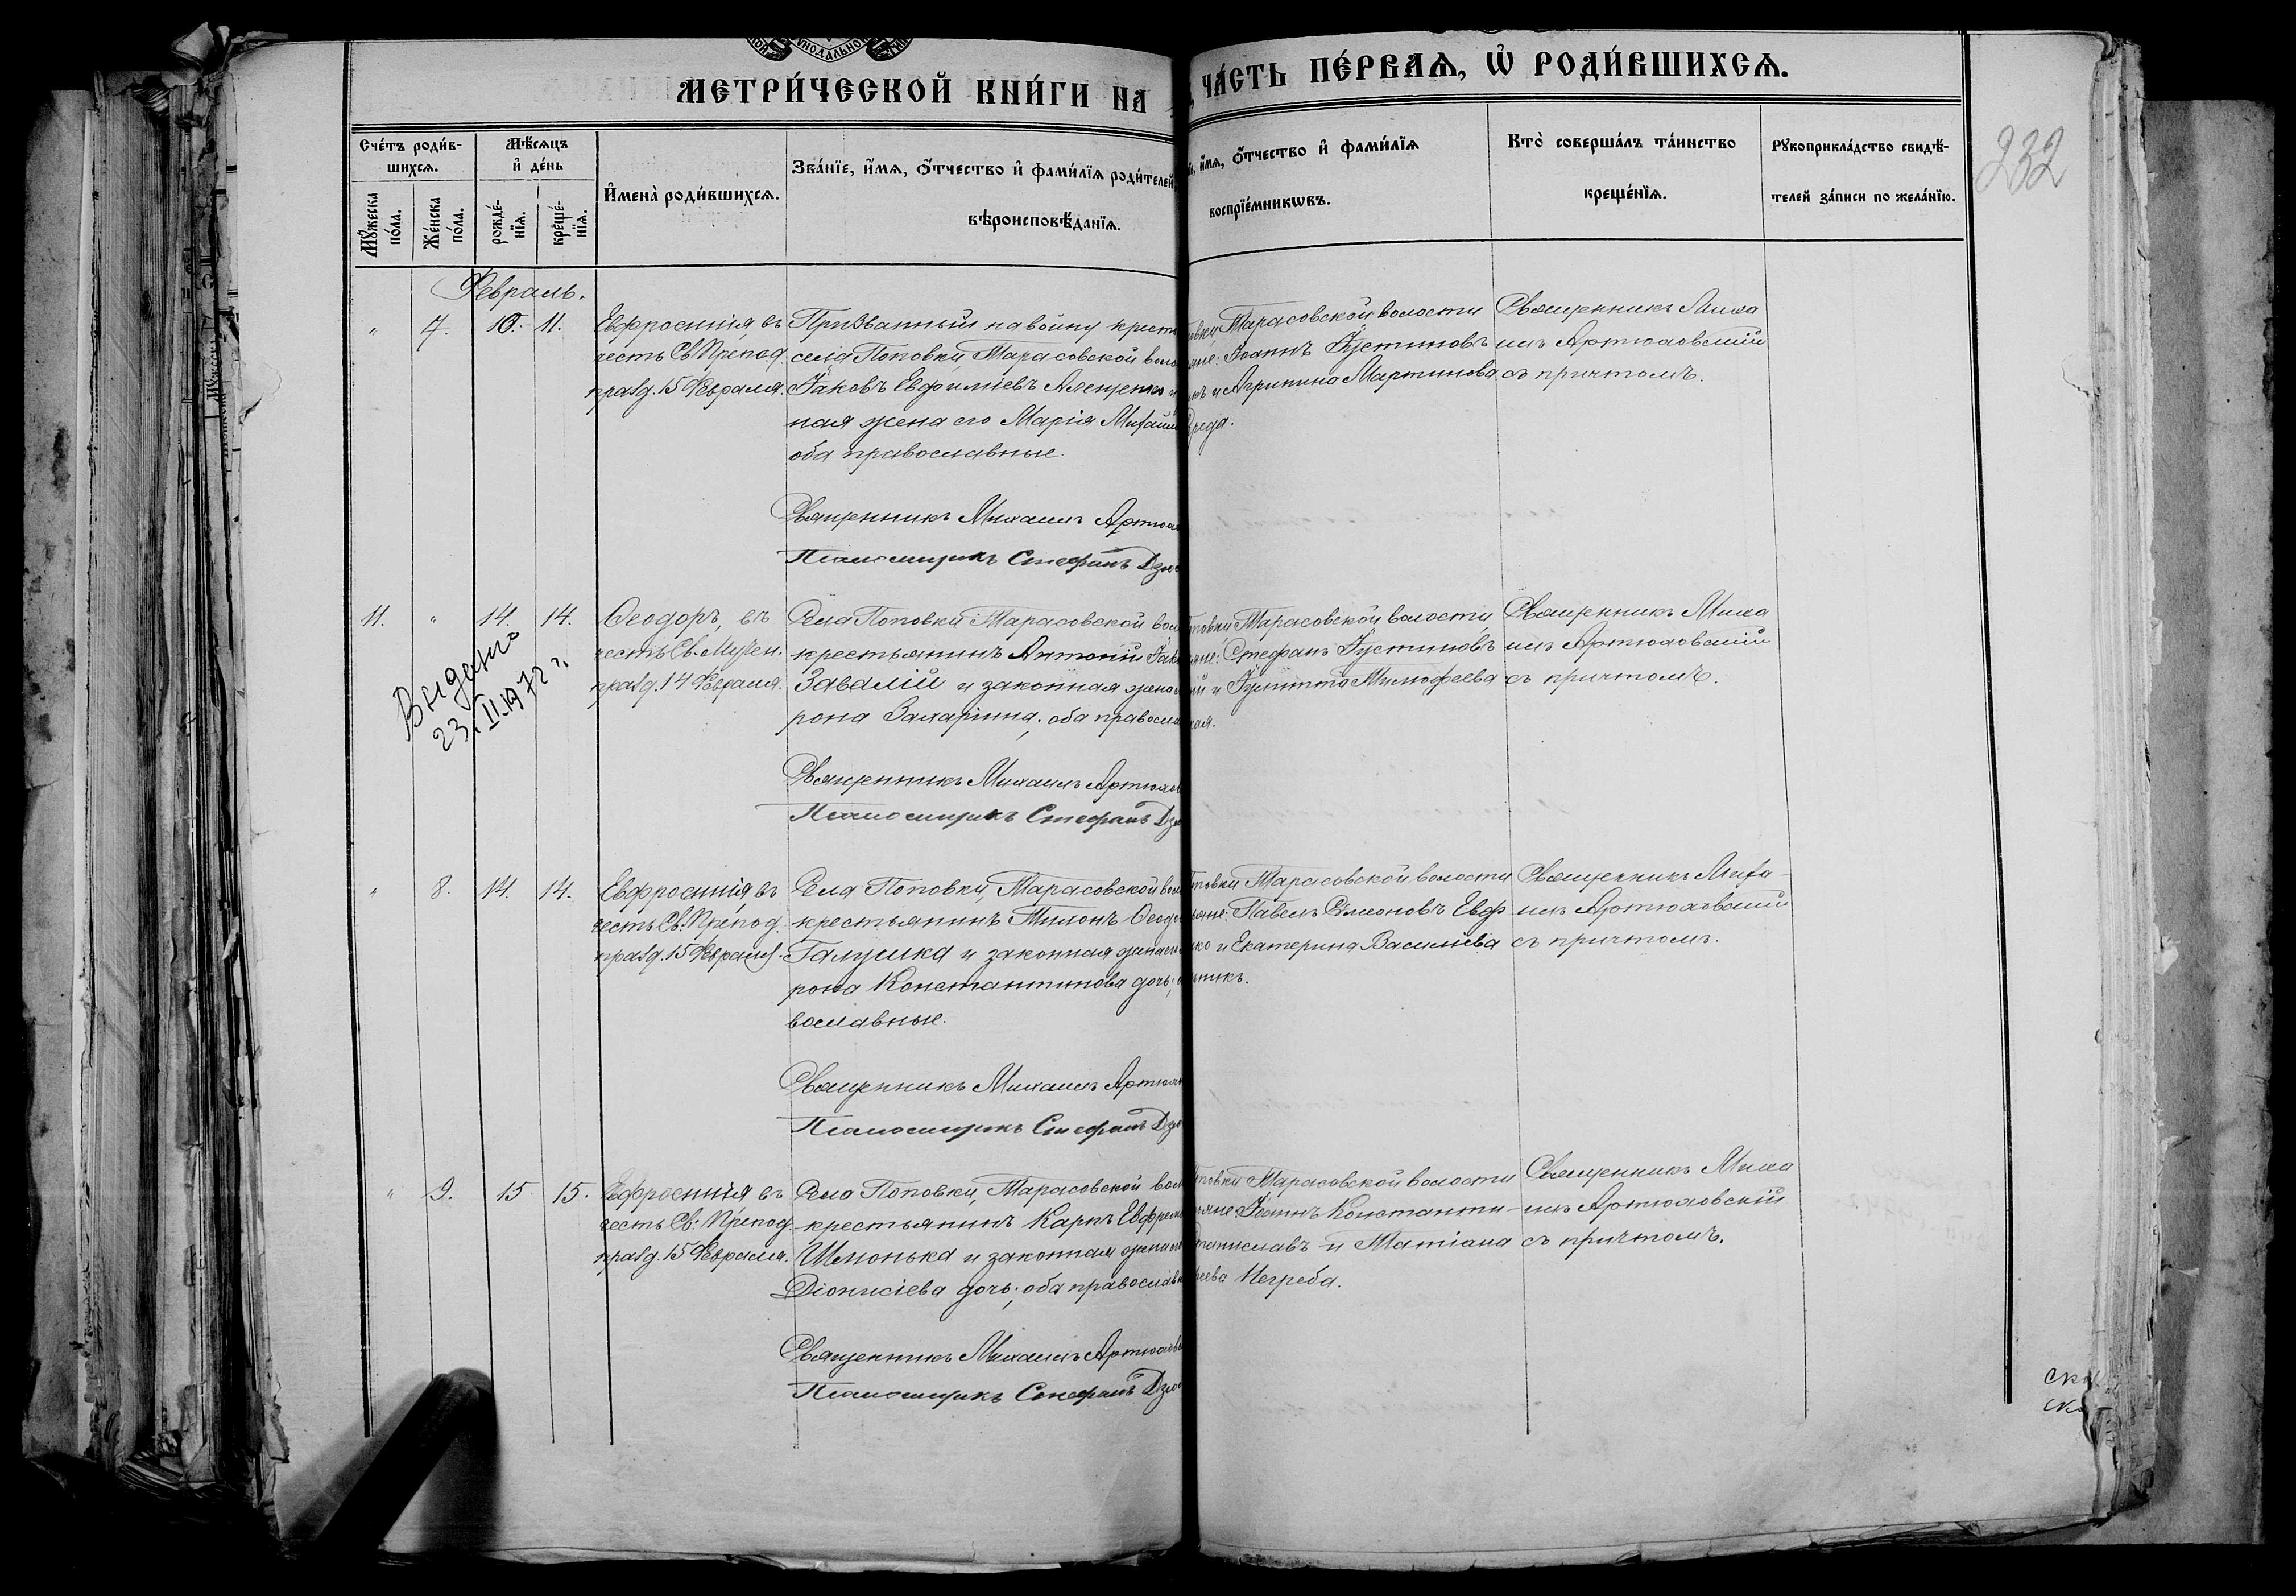 МЕТРИ́ЧЕСКОЙ КНИ́ГИ НА
, ЧА́СТЬ ПЕ́РВАѦ, Ѡ РОДИ́ВШИХСѦ.
232
Сче́тъ роди́в-
шихсѧ.
Мѣ́сѧцъ
и де́нь
Мꙋ́жеска
по́ла.
Же́нска
по́ла.
рожде́-
нїѧ.
креще́-
нїѧ.
Имена̀ роди́вшихсѧ.
Зва́нїе, и́мѧ, ѻ́тчество и фами́лїѧ роди́телей,
вѣроисповѣ́данїѧ.
и́мѧ, ѻ́тчество и фами́лїѧ
воспрїе́мникѡвъ.
Кто̀ соверша́лъ та́инство
креще́нїѧ.
Рꙋкоприкла́дство свидѣ́-
телей за́писи по жела́нїю.
Февраль.
" 7. 10. 11.
Евфросинія, въ
честь Св. Препод.
празд. 15 Февраля.
Призванный на войну крест
села Поповки, Тарасовской воло
Іаковъ Евфиміевъ Алещенко и
ная жена его Марія Михаил
оба православные.
Священникъ Михаилъ Артюх
Псаломщикъ Стефанъ Дзю
Тарасовской волости
Іоаннъ Іустиновъ
и Агрипина Мартинова
Священникъ Миха
илъ Артюховскій
съ причтомъ.
11. " 14. 14.
Выдано
23.II.1972 г.
Ѳеодоръ, въ
честь Св. Мучен.
празд. 14 Февраля.
Села Поповки Тарасовской вол
крестьянинъ Антоній Іак
Завалій и законная жена
рона Захаріина; оба правосла
Священникъ Михаилъ Артюхов
Псаломщикъ Стефанъ Дзю
повки Тарасовской волости
яне: Стефанъ Іустиновъ
ій и Іулитта Тимофеева
ная.
Священникъ Миха
илъ Артюховскій
съ причтомъ.
" 8. 14. 14.
Евфросинія, въ
честь Св. Препод.
празд. 15 Февраля.
Села Поповки, Тарасовской вол
крестьянинъ Тихонъ Ѳеодо
Галушка и законная жена его
рона Константинова дочь;
вославные.
Священникъ Михаилъ Артюх
Псаломщикъ Стефанъ Дзю
повки Тарасовской волости
яне: Павелъ Симеоновъ Евф
ко и Екатерина Василіева
никъ.
Священникъ Миха-
илъ Артюховскій
съ причтомъ.
" 9. 15. 15.
Евфросинія въ
честь Св. Препод
празд. 15 Февраля.
Села Поповки, Тарасовской вол
крестьянинъ Карпъ Евфрем
Шмонька и законная жена его
Діонисіева дочь; оба православн
Священникъ Михаилъ Артюхов
Псаломщикъ Стефанъ Дзю
повки Тарасовской волости
яне: Іоаннъ Константи-
таниславъ и Татіана
еева Негреба.
Священникъ Миха
илъ Артюховскій
съ причтомъ.